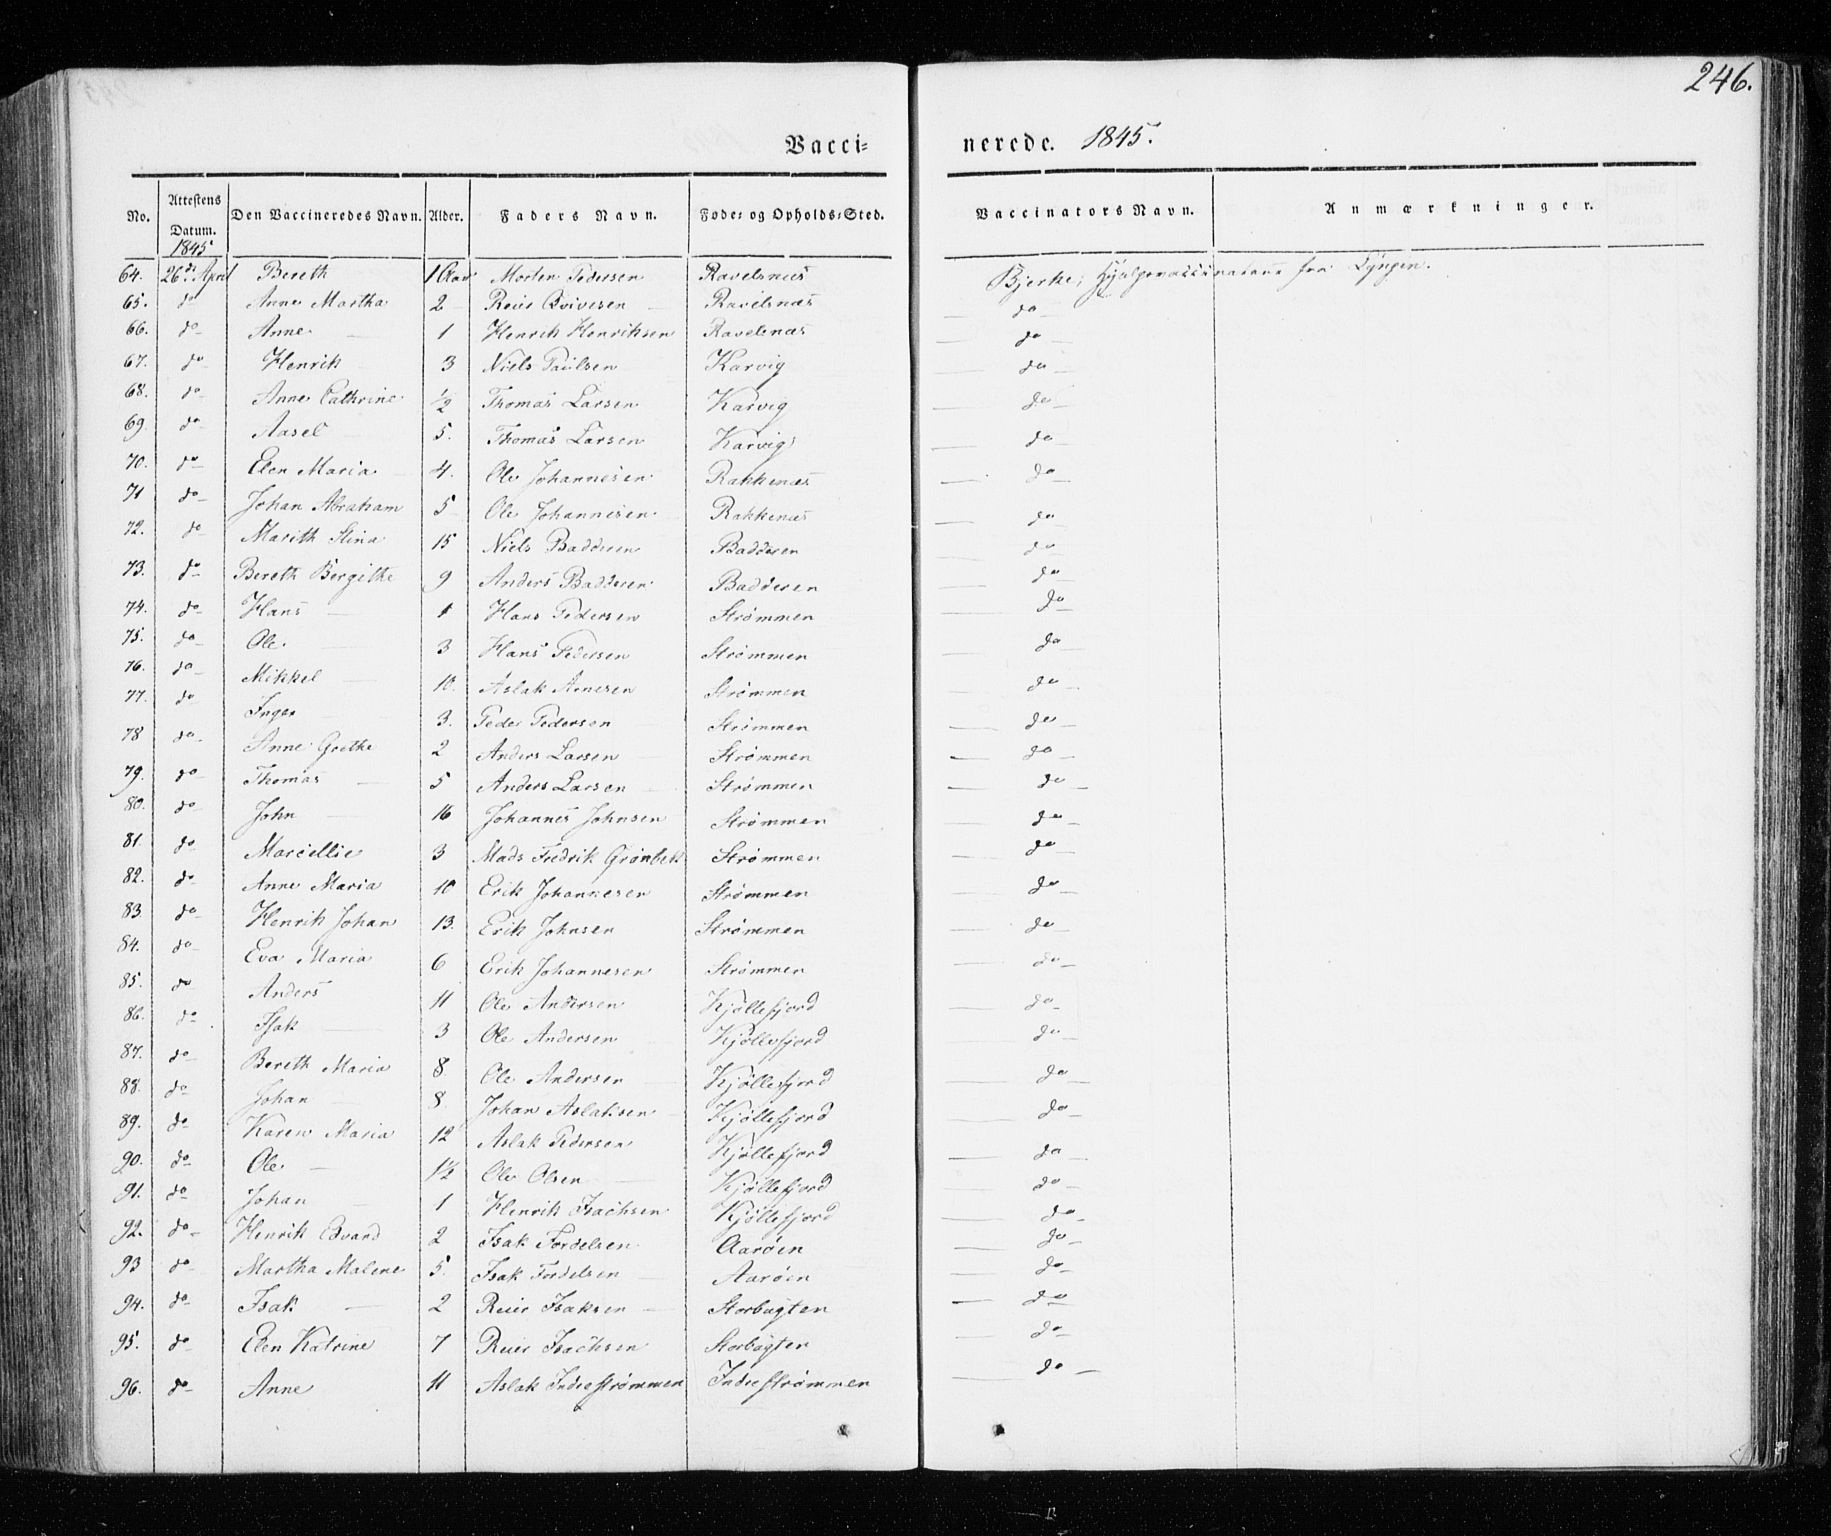 246.
Vacci= nerede. 1845.
No. Attestens Datum. Den Vaccineredes Navn. Alder. Faders Navn. Føde= og Opholds=Sted. Vaccinators Navn. Anmærkninger.
1845
64. 26de April Bereth 1 Aar Morten Pedersen Ravelsnæs Bjerke, fra Lyngen.
65. do Anne Martha 2 Qvivesen Ravelsnæs do
66. do Anne 1 Henrik Henriksen Ravelsnæs do
67. do Henrik 3 Niels Paulsen Karvig do
68. do Anne Cathrine ½ Thomas Larsen Karvig do
69. do Aasel 5. Thomas Larsen Karvig do
70. do Elen Maria 4. Ole Johannesen Rakkenæs do
71 do Johan Abraham 5 Ole Johannesen Rakkenæs do
72. do Marith Stina 15 Niels Badderen Badderen do
73. do Bereth Bergithe 9 Anders Badderen Badderen do
74. do Hans 1 Hans Pedersen Strømmen do
75. do Ole 3 Hans Pedersen Strømmen do
76. do Mikkel 10. Aslak Arnesen Strømmen do
77. do Inger 3. Peder Pedersen Strømmen do
78 do Anne Grethe 2 Anders Larsen Strømmen do
79. do Thomas 5 Anders Larsen Strømmen do
80. do John 16 Johannes Johnsen Strømmen do
81. do Marcellie 3 Mads Fredrik Grønbek Strømmen do
82. do Anne Maria 10 Erik Johannesen Strømmen do
83 do Henrik Johan 13. Erik Johnsen Strømmen do
84. do Eva Maria 6 Erik Johannesen Strømmen do
85. do Anders 11 Ole Andersen Kjøllefjord do
86. do Isak 3 Ole Andersen Kjøllefjord do
87. do Bereth Maria 8 Ole Andersen Kjøllefjord do
88. do Johan 8 Johan Aslaksen Kjøllefjord do
89. do Karen Maria 12 Aslak Pedersen Kjøllefjord do
90. do Ole 1½ Ole Olsen Kjøllefjord do
91. do Johan 1 Henrik Isachsen Kjøllefjord do
92. do Henrik Edvard 2 Isak Fordelsen Aarøen do
93 do Martha Malene 5. Isak Fordelsen Aarøen do
94. do Isak 2 Isaksen Storbugten do
95. do Elen Katrine 7 Isachsen Storbugten do
96. do Anne 11 Aslak Indrestrømmen Indrestrømmen do